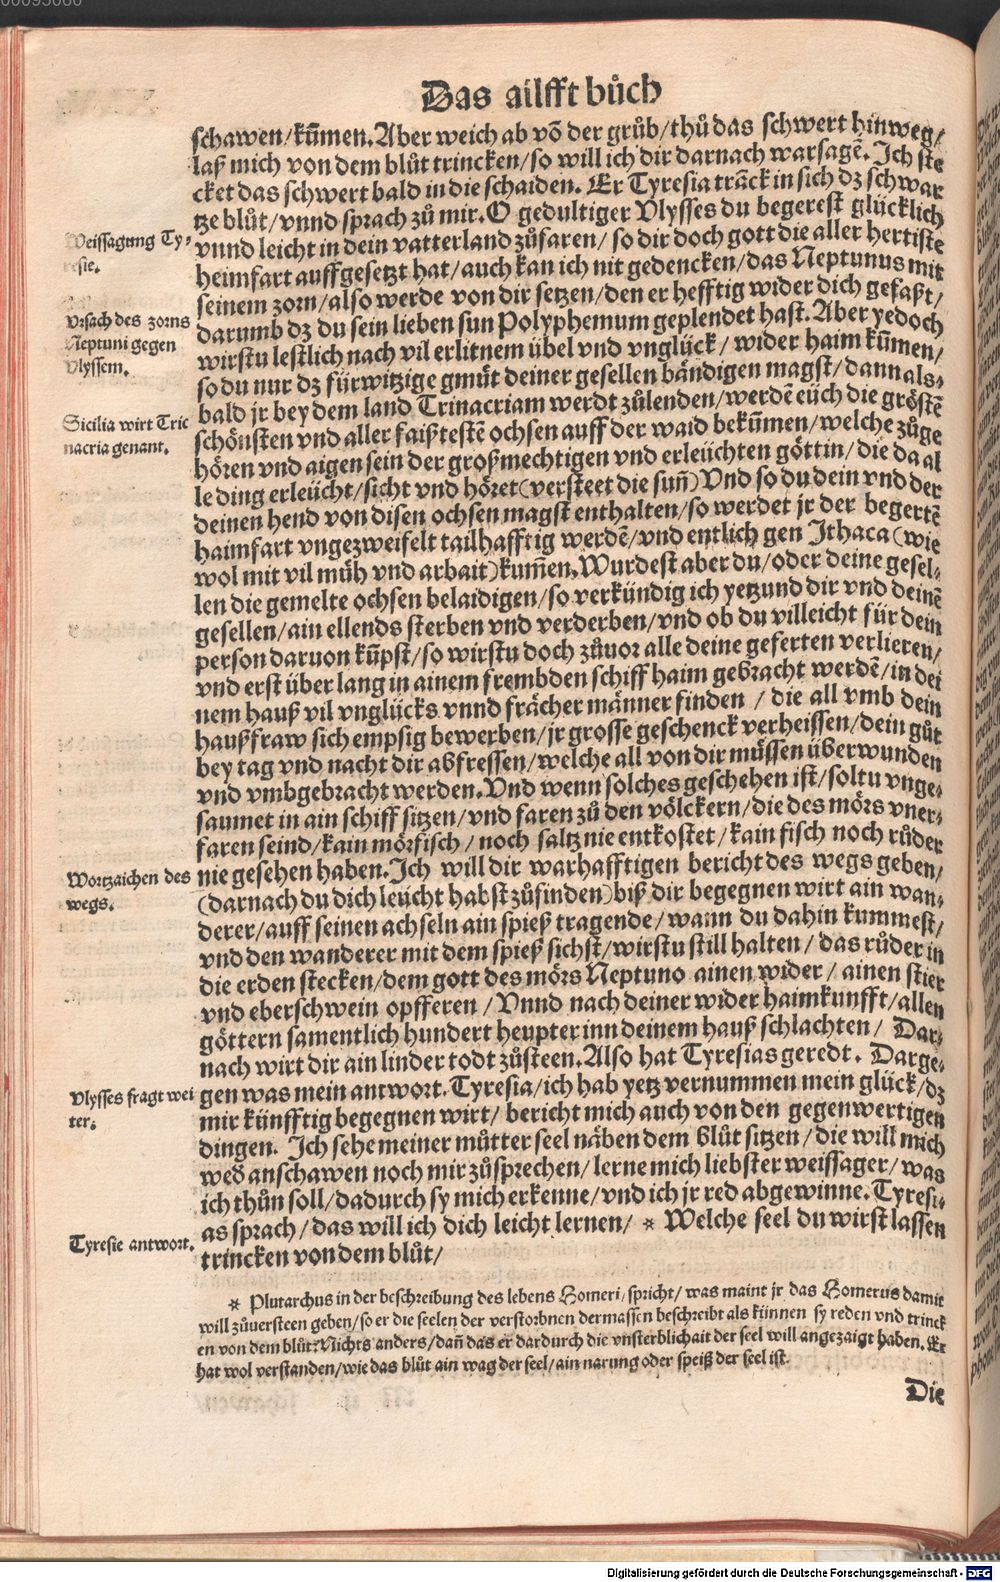 00095060
Das ailfft bůch
schawen/kum̃en. Aber weich ab võ der grůb/thů das schwert hinweg/
laß mich von dem blůt trincken/so will ich dir darnach warsagẽ. Ich ste
cket das schwert bald in die schaiden. Er Tyresia trãck in sich dz schwar
tze blůt/vnnd sprach zů mir. O gedultiger Vlysses du begerest glücklich
Weissagung Ty⸗
resie.
vnnd leicht in dein vatterland zůfaren/ so dir doch gott die aller hertiste
heimfart auffgesetzt hat/auch kan ich nit gedencken/das Neptunus mit
seinem zorn/also werde von dir setzen/den er hefftig wider dich gefaßt/
Vrsach des zorns
Neptuni gegen
Vlyssem.
darumb dz du sein lieben sun Polyphemum geplendet hast. Aber yedoch
wirstu lestlich nach vil erlitnem übel vnd vnglück/ wider haim kum̃en/
so du nur dz fürwitzige gmüt deiner gesellen bändigen magst/dann als⸗
bald jr bey dem land Trinacriam werdt zůlenden/werdẽ eüch die gröstẽ
Sicilia wirt Tric
nacria genant.
schönsten vnd aller faißtestẽ ochsen auff der waid bekum̃en/welche zůge
hören vnd aigen sein der großmechtigen vnd erleüchten göttin/die da al
le ding erleücht/sicht vnd höret(versteet die suñ) Vnd so du dein vnd der
deinen hend von disen ochsen magst enthalten/so werdet jr der begertẽ
haimfart vngezweifelt tailhafftig werdẽ/vnd entlich gen Ithaca (wie
wol mit vil müh vnd arbait) kum̃en. Wurdest aber du/oder deine gesel⸗
len die gemelte ochsen belaidigen/so verkündig ich yetzund dir vnd deinẽ
gesellen/ain ellends sterben vnd verderben/vnd ob du villeicht für dein
person daruon kum̃pst/so wirstu doch zůuor alle deine geferten verlieren/
vnd erst über lang in ainem frembden schiff haim gebracht werdẽ/in dei
nem hauß vil vnglücks vnnd frächer männer finden / die all vmb dein
haußfraw sich empsig bewerben/jr grosse geschenck verheissen/dein gůt
bey tag vnd nacht dir abfressen/welche all von dir müssen überwunden
vnd vmbgebracht werden. Vnd wenn solches geschehen ist/soltu vnge⸗
saumet in ain schiff sitzen/vnd faren zů den völckern/die des mörs vner⸗
faren seind/kain mörfisch / noch saltz nie entkostet/kain fisch noch růder
Wortzaichen des
wegs.
nie gesehen haben. Ich will dir warhafftigen bericht des wegs geben/
(darnach du dich leücht habst zůfinden) biß dir begegnen wirt ain wan⸗
derer/auff seinen achseln ain spieß tragende/wann du dahin kummest/
vnd den wanderer mit dem spieß sichst/wirstu still halten/ das růder in
die erden stecken/dem gott des mörs Neptuno ainen wider / ainen stier
vnd eberschwein opfferen / Vnnd nach deiner wider haimkunfft/allen
göttern samentlich hundert heupter inn deinem hauß schlachten / Dar⸗
nach wirt dir ain linder todt zůsteen. Also hat Tyresias geredt. Darge⸗
Vlysses fragt wei
ter.
gen was mein antwort. Tyresia/ich hab yetz vernummen mein glück/dz
mir künfftig begegnen wirt/ bericht mich auch von den gegenwertigen
dingen. Ich sehe meiner můtter seel näben dem blůt sitzen/die will mich
wed̃ anschawen noch mir zůsprechen/lerne mich liebster weissager/was
ich thůn soll/dadurch sy mich erkenne/vnd ich jr red abgewinne. Tyresi⸗
Tyresie antwort.
as sprach/das will ich dich leicht lernen/ * Welche seel du wirst lassen
trincken von dem blůt/
* Plutarchus in der beschreibung des lebens Homeri/spricht/was maint jr das Homerus damit
will zůuersteen geben/so er die seelen der verstorbnen dermassen beschreibt als künnen sy reden vnd trinck
en von dem blůt: Nichts anders/dañ das er dardurch die vnsterblichait der seel will angezaigt haben. Er
hat wol verstanden/wie das blůt ain wag der seel/ain narung oder speiß der seel ist.
Die
Digitalisierung gefördert durch die Deutsche Forschungsgemeinschaft - DFG